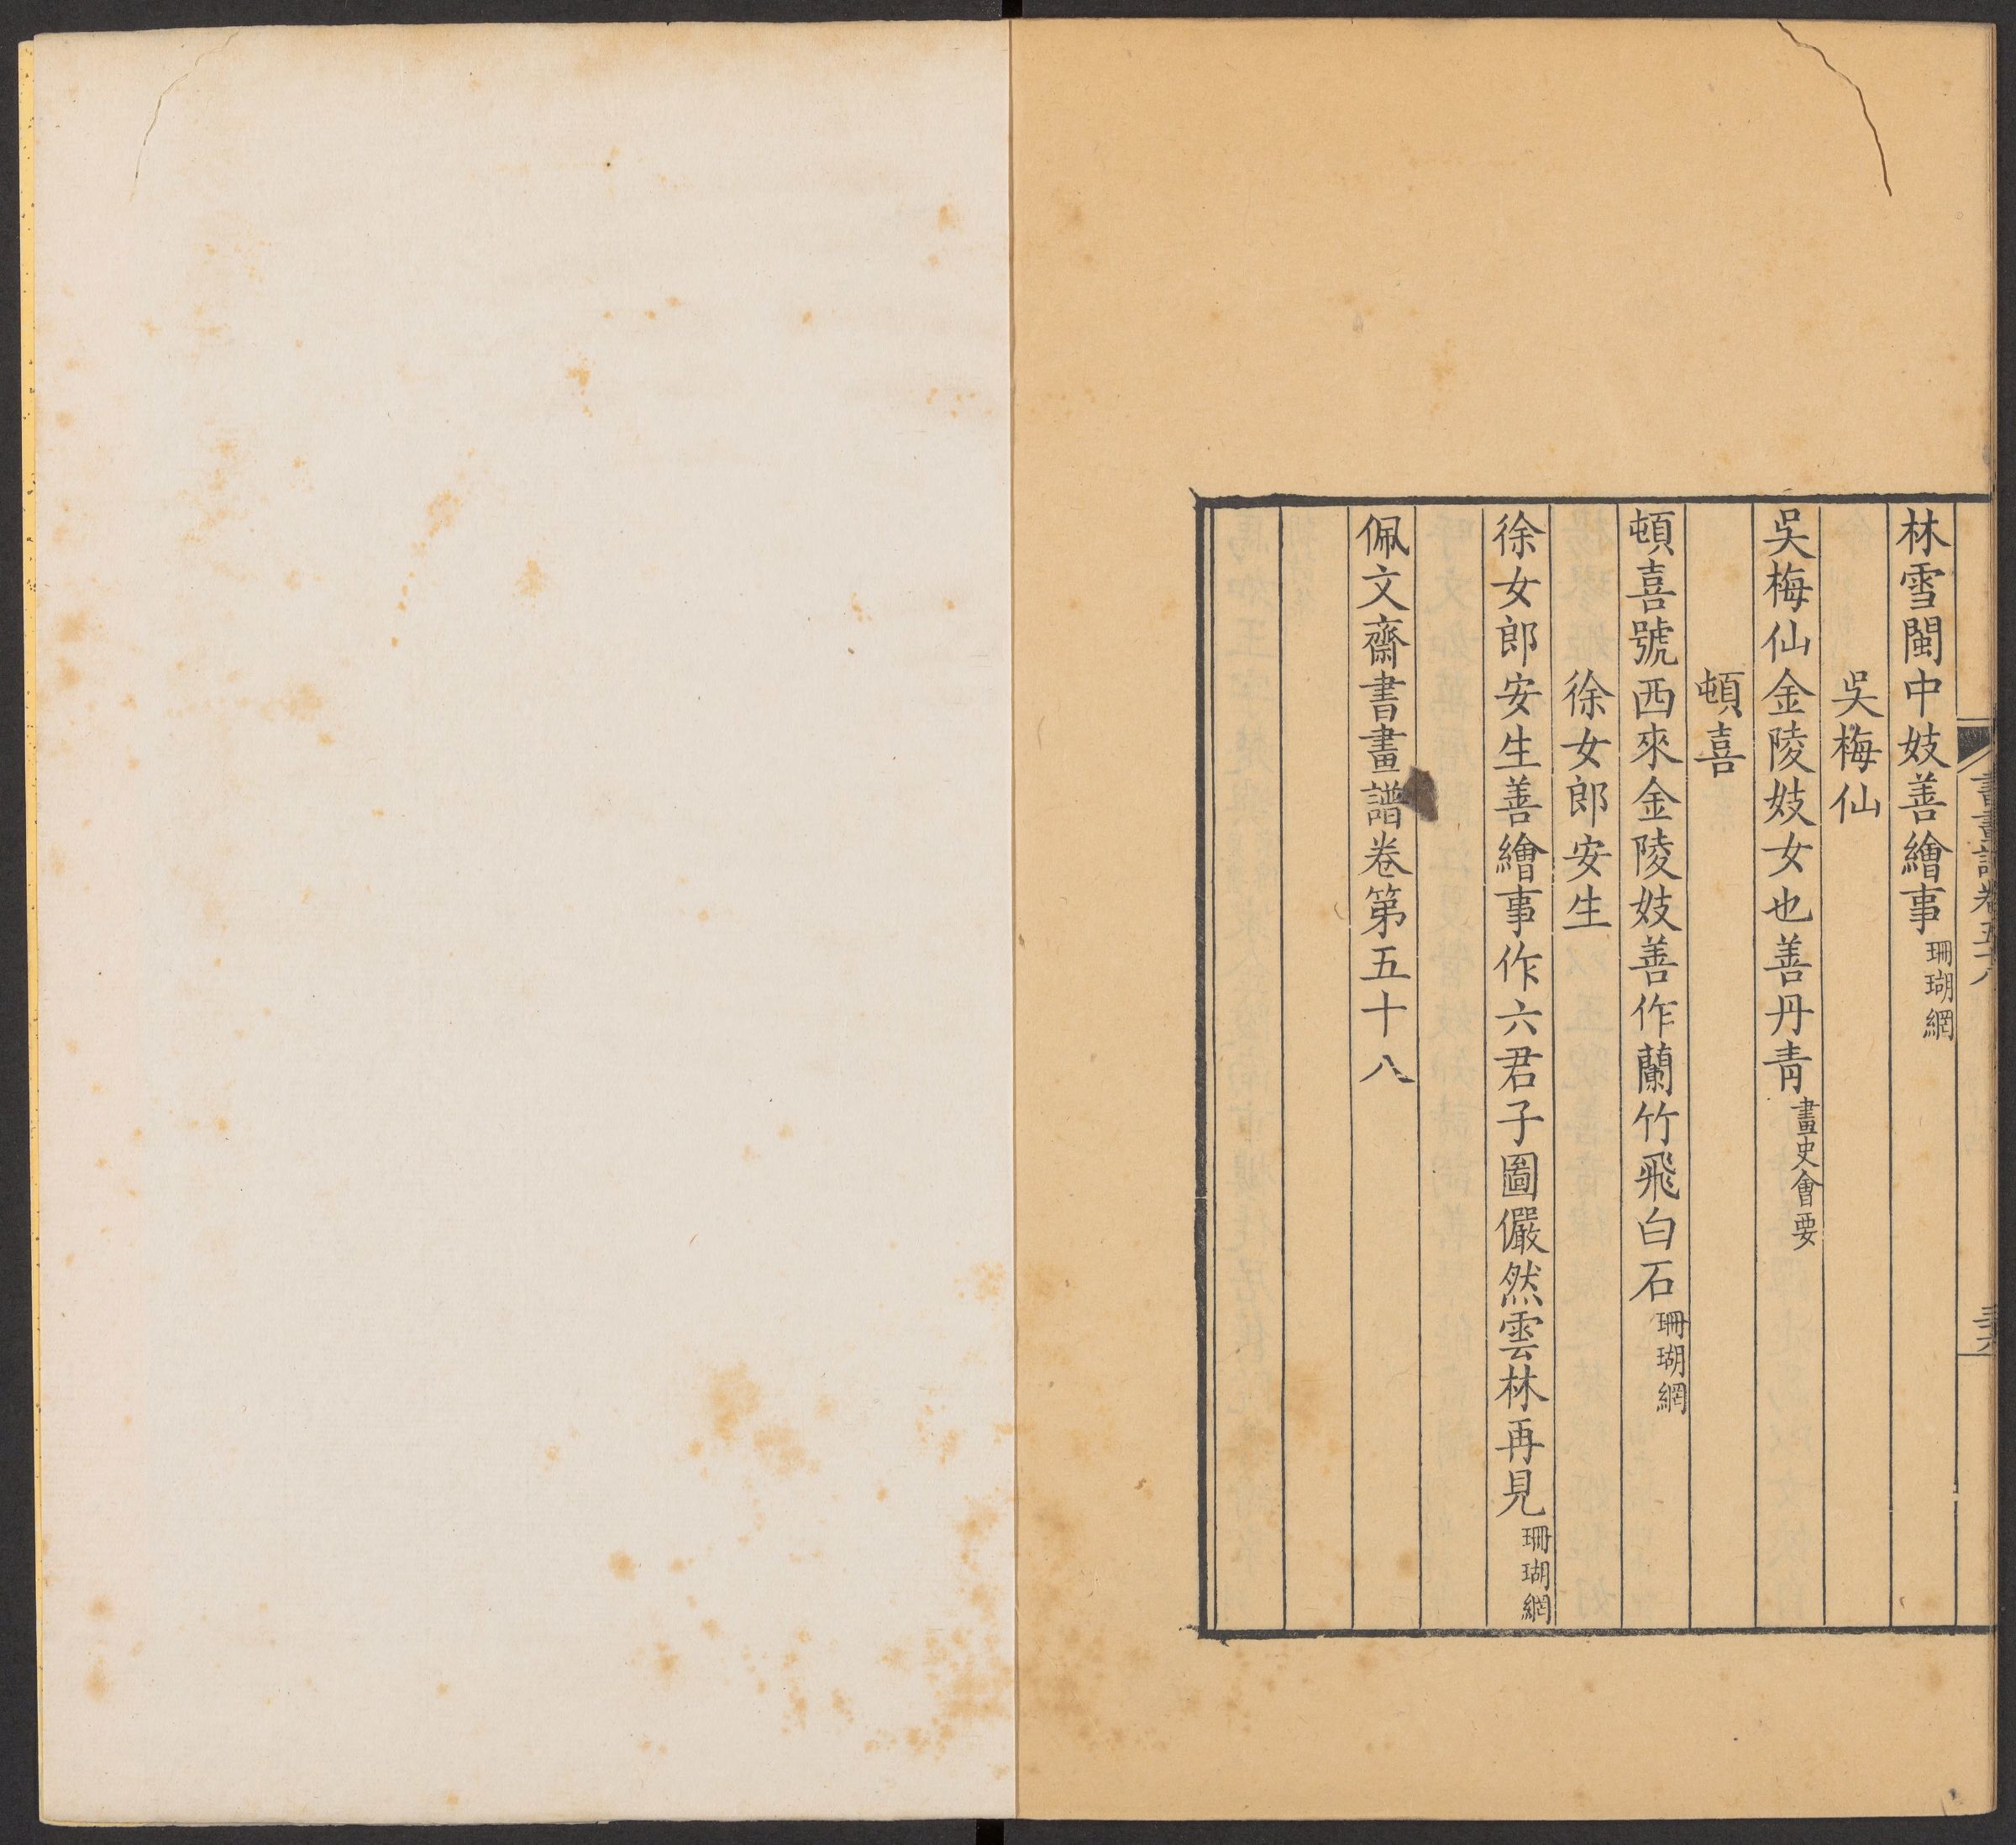 書畫譜卷五十八
林雪閩中妓善繪事珊瑚網
吳梅仙
吳梅仙金陵妓女也善丹青畫史會要
頓喜
頓喜號西來金陵妓善作蘭竹飛白石珊瑚網
徐女郎安生
徐女郎安生善繪事作六君子圖儼然雲林再見珊瑚網
佩文齋書畫譜卷第五十八